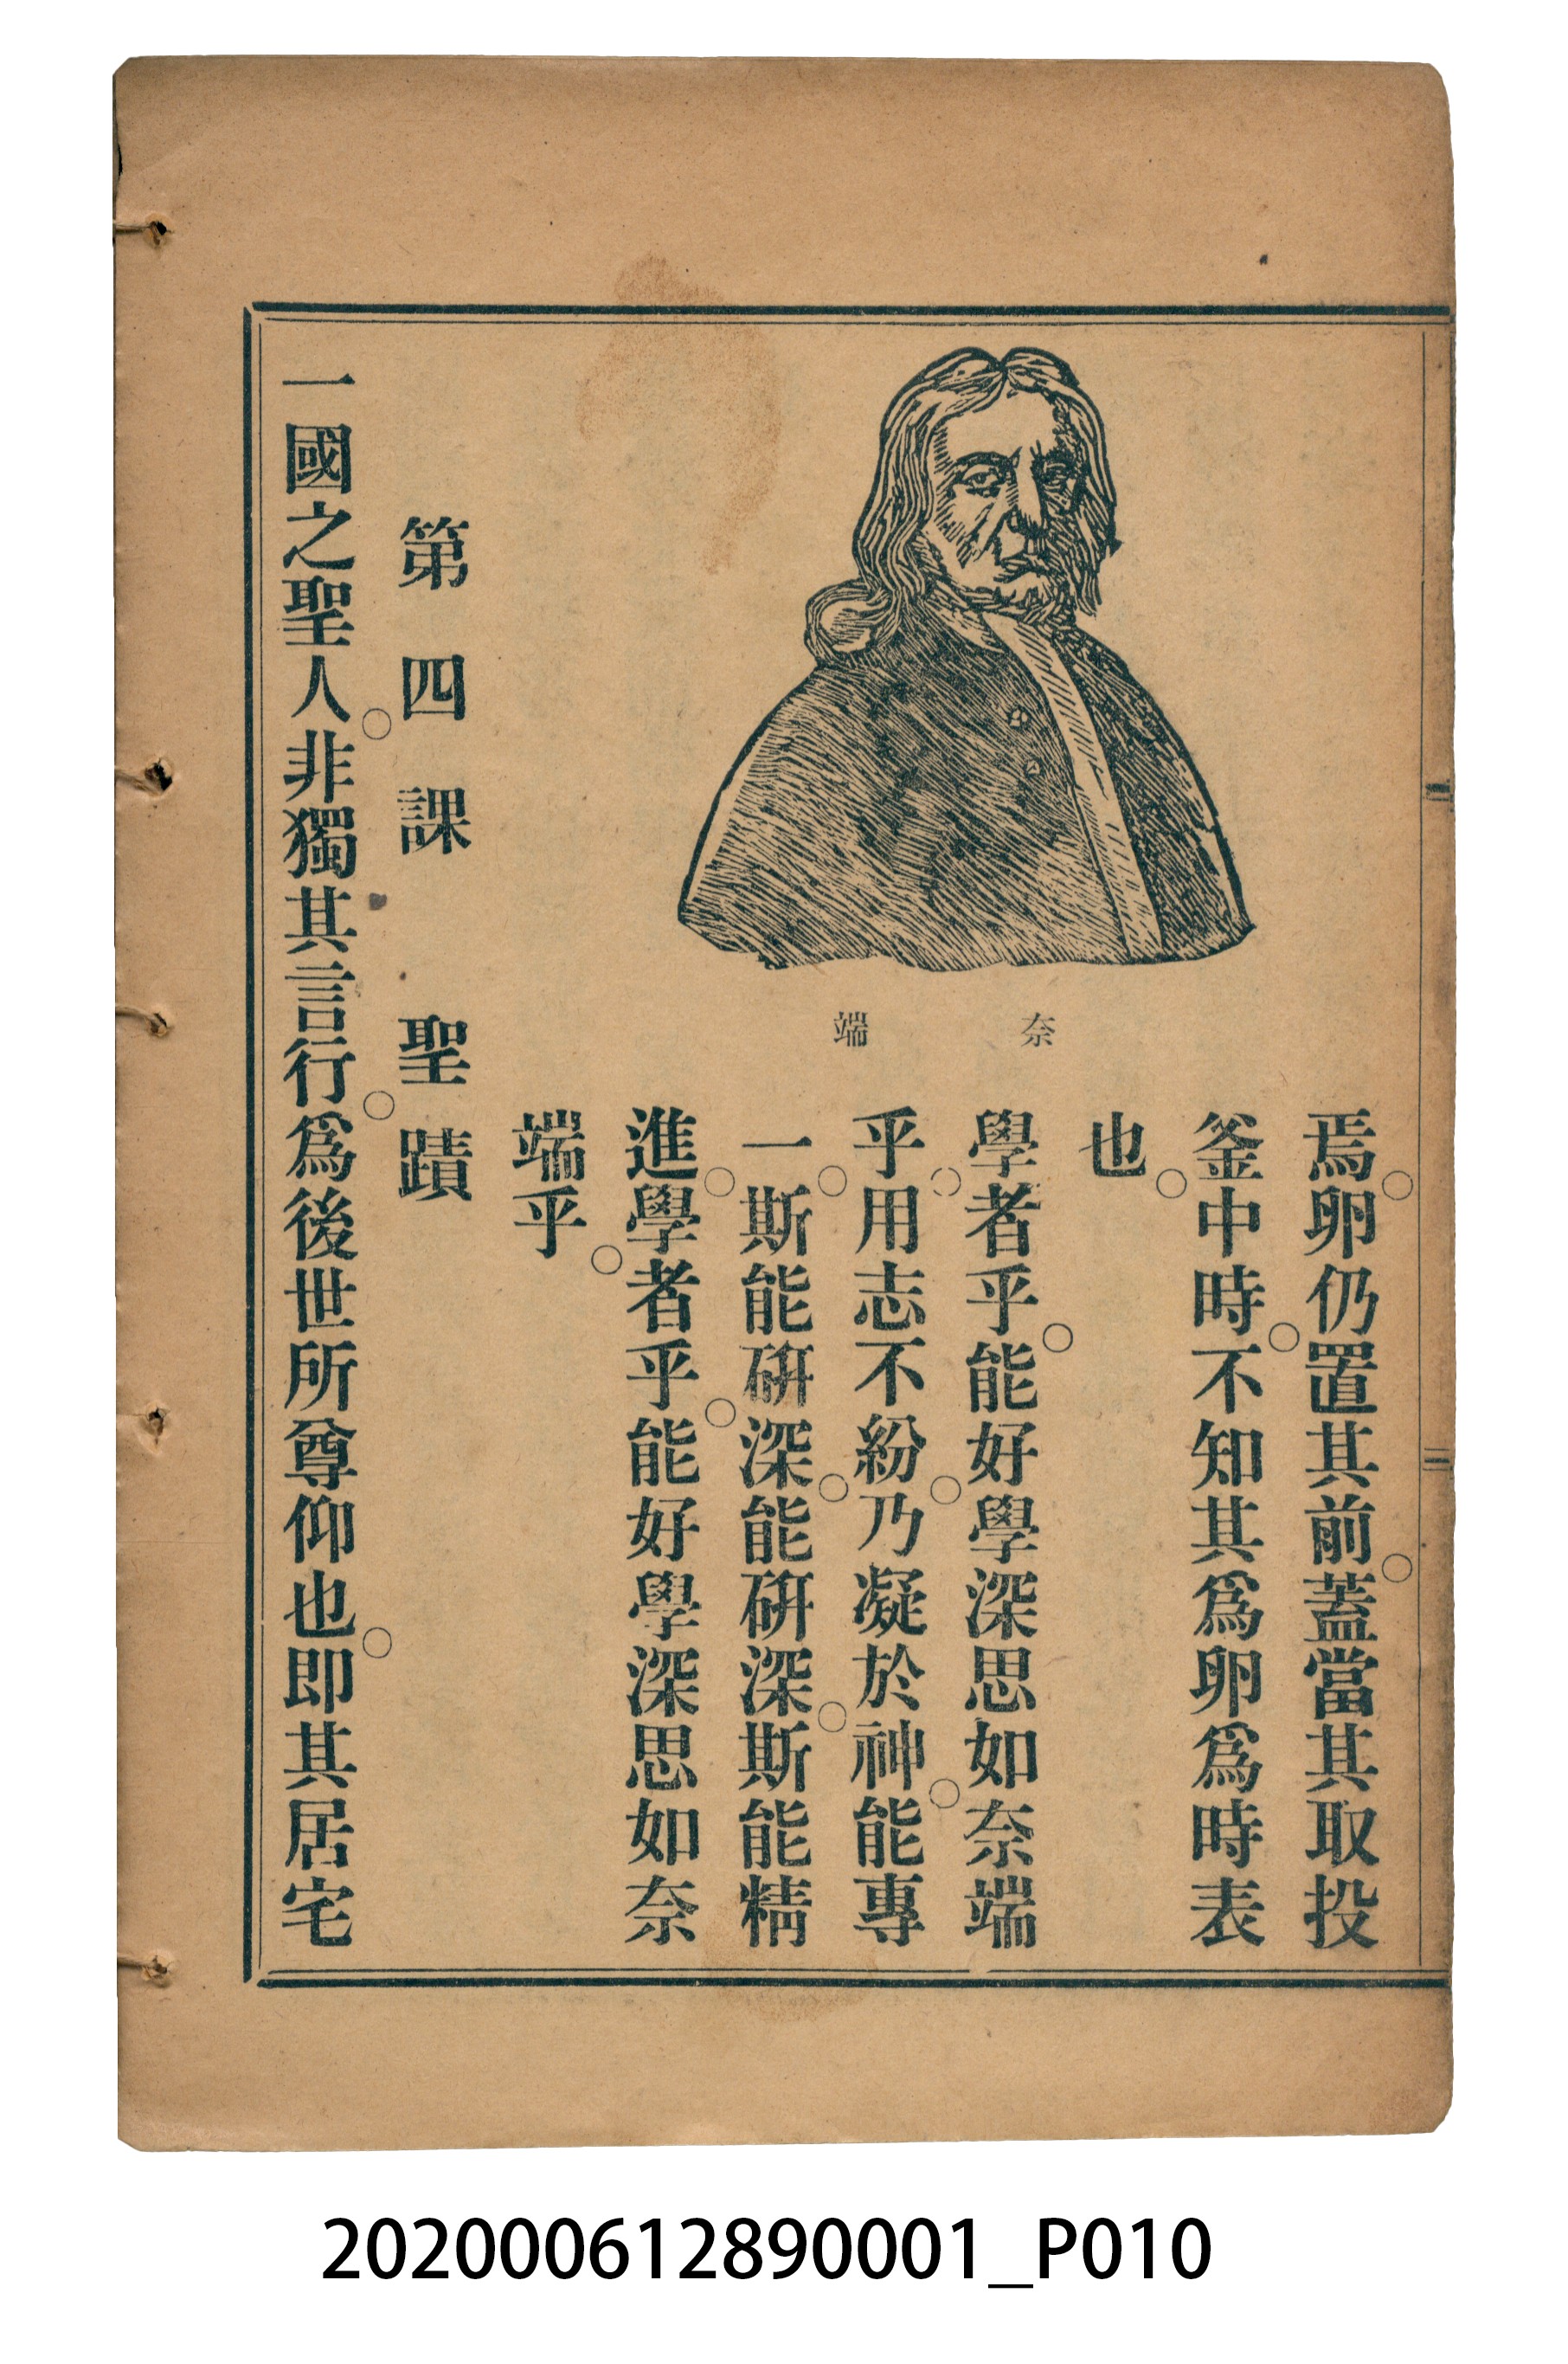 焉。卵仍置其前。蓋當其取投
釜中時。不知其爲卵爲時表
也。
學者乎。能好學深思如奈端
乎。用志不紛。乃凝於神。能專
一。斯能硏深。能硏深。斯能精
進。學者乎。能好學深思如奈
端乎。
奈端
第四課 聖蹟
一國之聖人。非獨其言行。爲後世所尊仰也。卽其居宅
二
202000612890001_P010